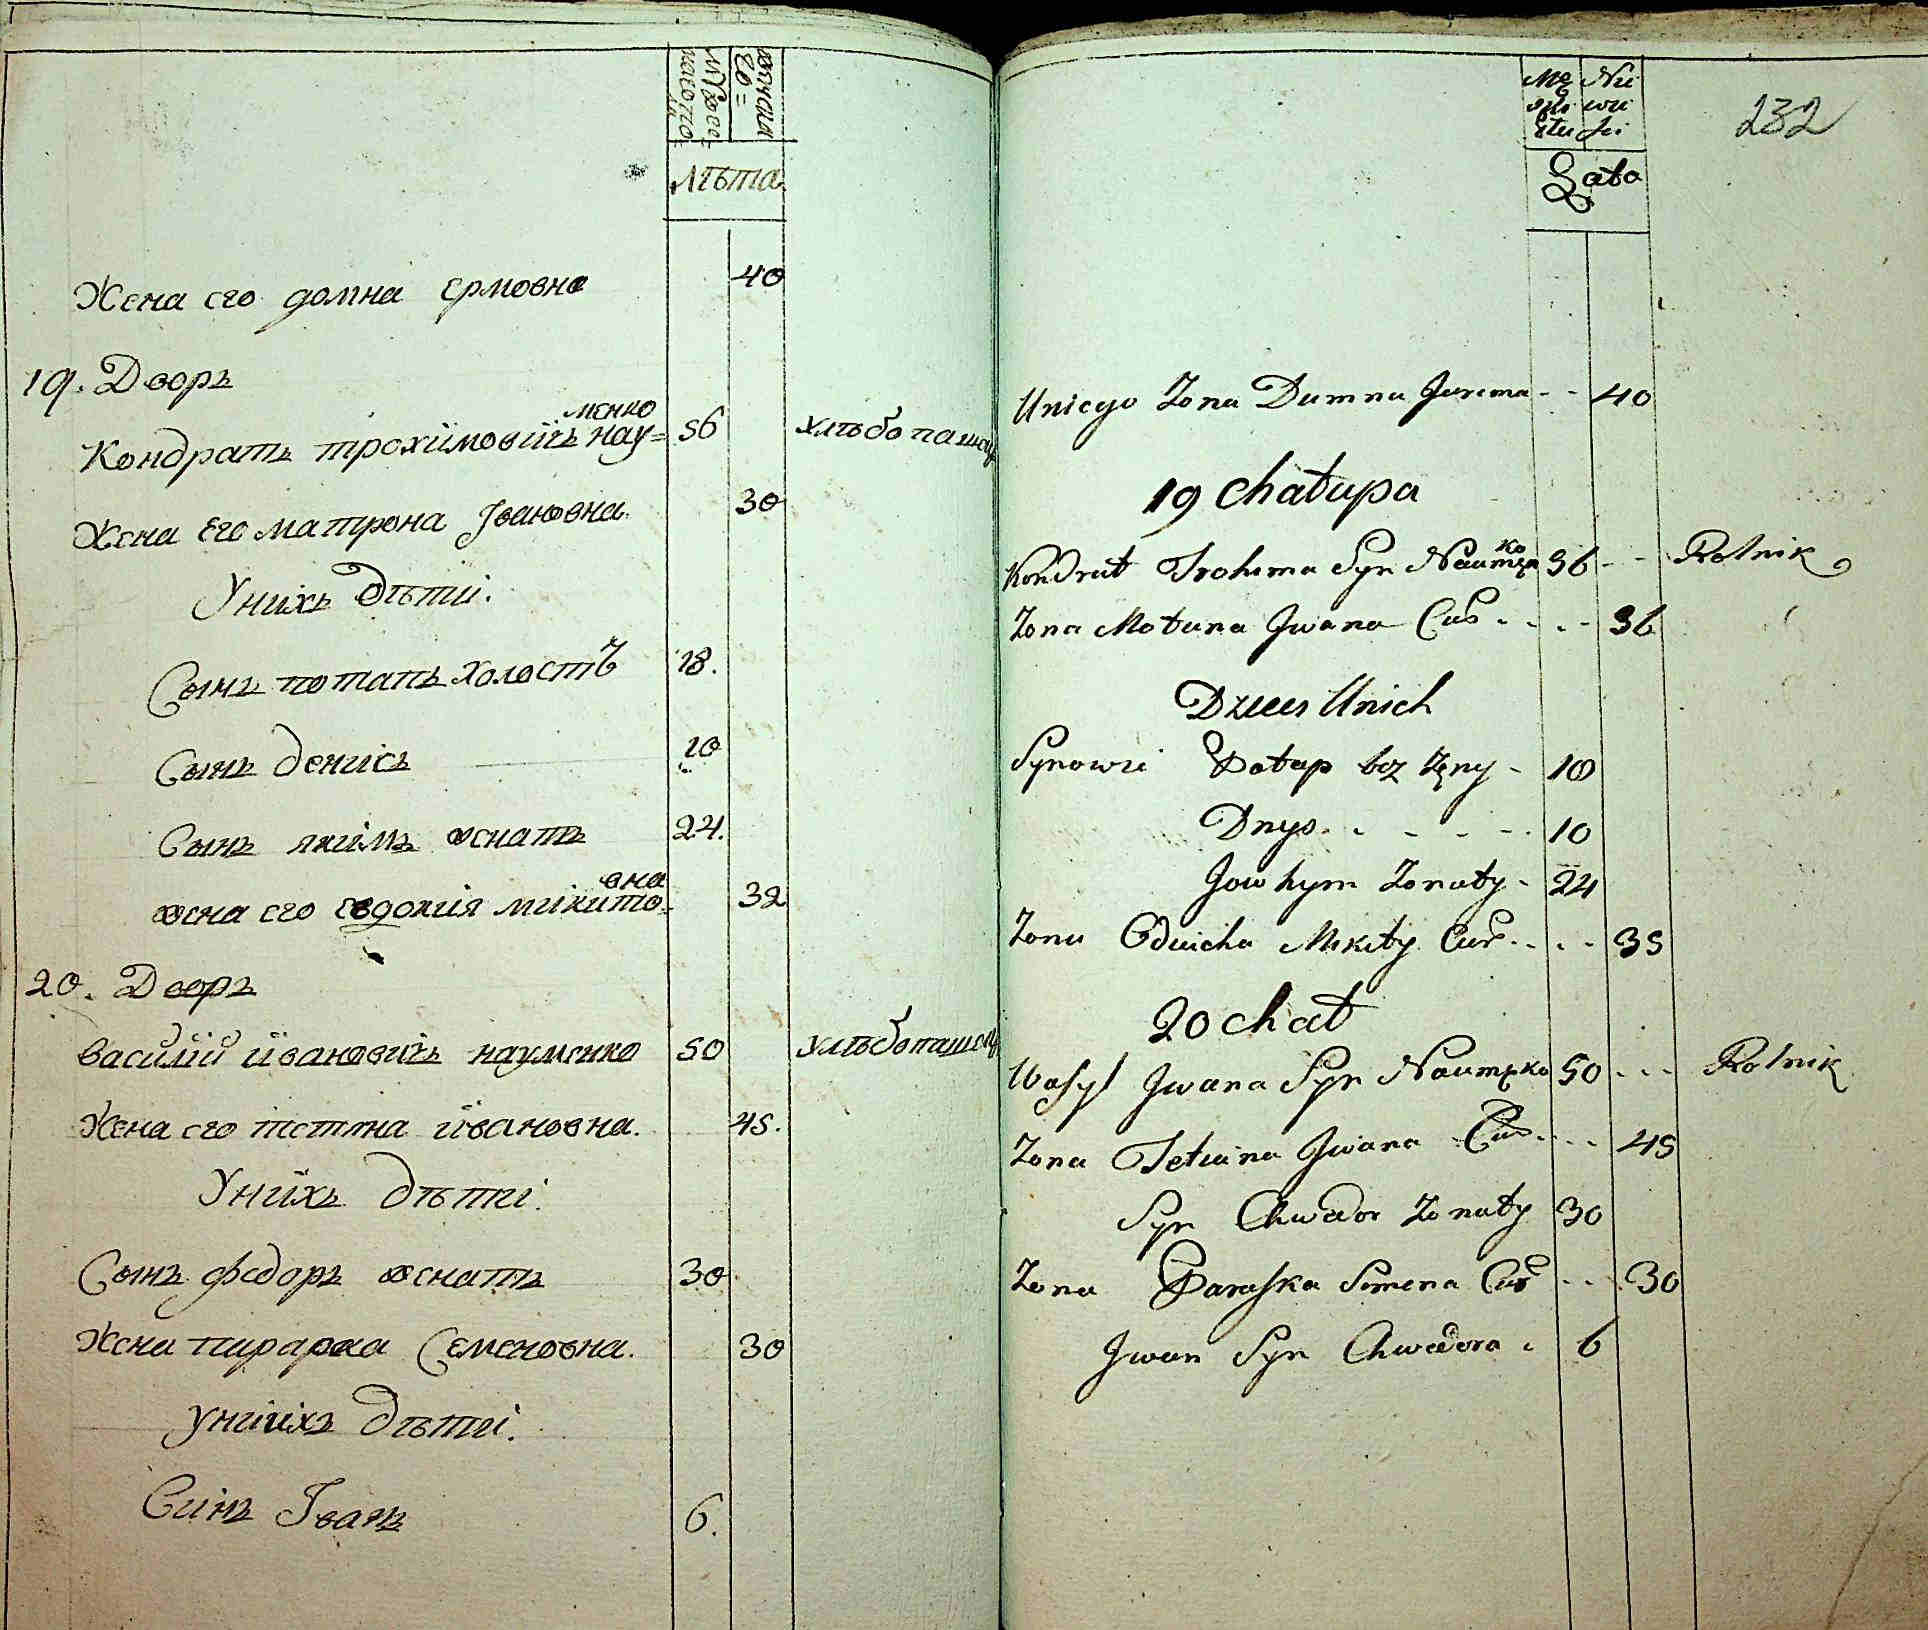 мужеско
го
женска
го
Лѣта
Жена его домна ермовна 40
19. Дворъ
Кондратъ трохімовичъ науменко 56 хлѣбопашец
Жена Его матрона Івановна. 30
Унихъ дѣти.
Сынъ потапъ холостъ 18.
Сынъ денисъ 10
Сынъ якимъ женатъ 24.
жена его евдокия микитовна 32
20. Дворъ
василий ивановичъ науменко 50 хлѣбопашец
Жена его тетяна ивановна. 45.
Унихъ дѣти.
Сынъ федоръ женатъ 30
Жена параска Семеновна. 30
унихъ дѣти.
Синъ Іванъ 6.
232
Łata
Unicgo Zona Dumna Jarema - - 40
19 chałupa
Kondrat Trohima Syn Naumęko 56 - - Rolnik
Zona Motuna Jwana Cur - - - - 36
Dzieci Unich
Synowi Potap bez Zęny - 18
Dnys - - - - - 10
Jowhym Zonaty - 24
Zona Odwicha Mikity Cur - - - - 35
20 chał
Wasyl Jwana Syn Naumęko 50 - - - Rolnik
Zona Tetiana Jwana Cur - - - - 45
Syn Chwedor Zonaty 30
Zona Paraska Semena Cur - - - 30
Jwan Syn Chwedora - 6